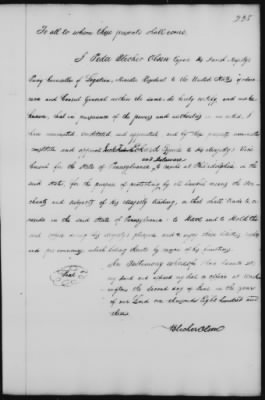 235
To all to whom these presents shall come
I Peder Blicher Olsen Danish Majesty's
Counsellor of Legation, Minister Resident to the United States of America
and Consul General within the same do hereby certify and make
known, that in pursuance of the powers and authority in me vested, I
have nominated constituted and appointed and by these presents nominate
constitute and appoint to be his Majesty's Vice
and Delaware
Consul for the State of Pennsylvania to reside at Philadelphia in the
said State, for the purpose of protecting by all lawful means the Mer-
chants and subjects of his Majesty trading, or that shall trade to or
reside in the said State of Pennsylvania: to Have and to Hold the
said office during his Majesty's pleasure and to enjoy all
which belong thereto by reason of his functions.
In Testimony whereof I have hereunto set
Seal
my hand and seal of office at Wash-
ington the second day of in the year
of our Lord one thousand Eight hundred and
three
Blicher Olsen